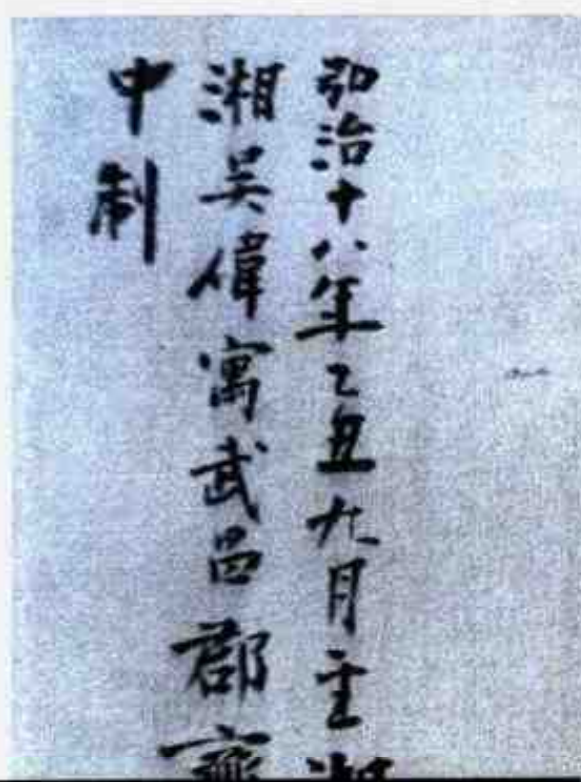 弘治十八年乙丑九月望
湘吴偉寓武昌郡齋
中制